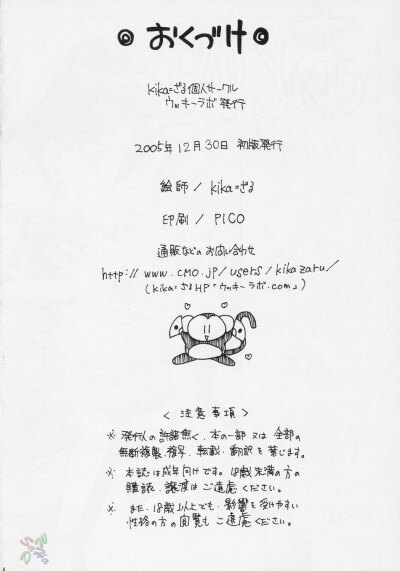 おくづけ
kika=ざる個人サークル
ウッキーラボ 発行
2005年12月30日 初版発行
絵師 / kika=ざる
印刷 / PICO
通販などのお問い合わせ
http://www.cmo.jp/users/kikazaru/
(kika=ざるHP「ウッキーラボ.com」)
<注意事項>
※ 発行人の許諾無く、本の一部又は全部の
無断複製、複写、転載、翻訳を禁じます。
※ 本誌は成年向けです。18歳未満の方の
購読、譲渡はご遠慮ください。
※ また、18歳以上でも、影響を受けやすい
性格の方の閲覧もご遠慮ください。